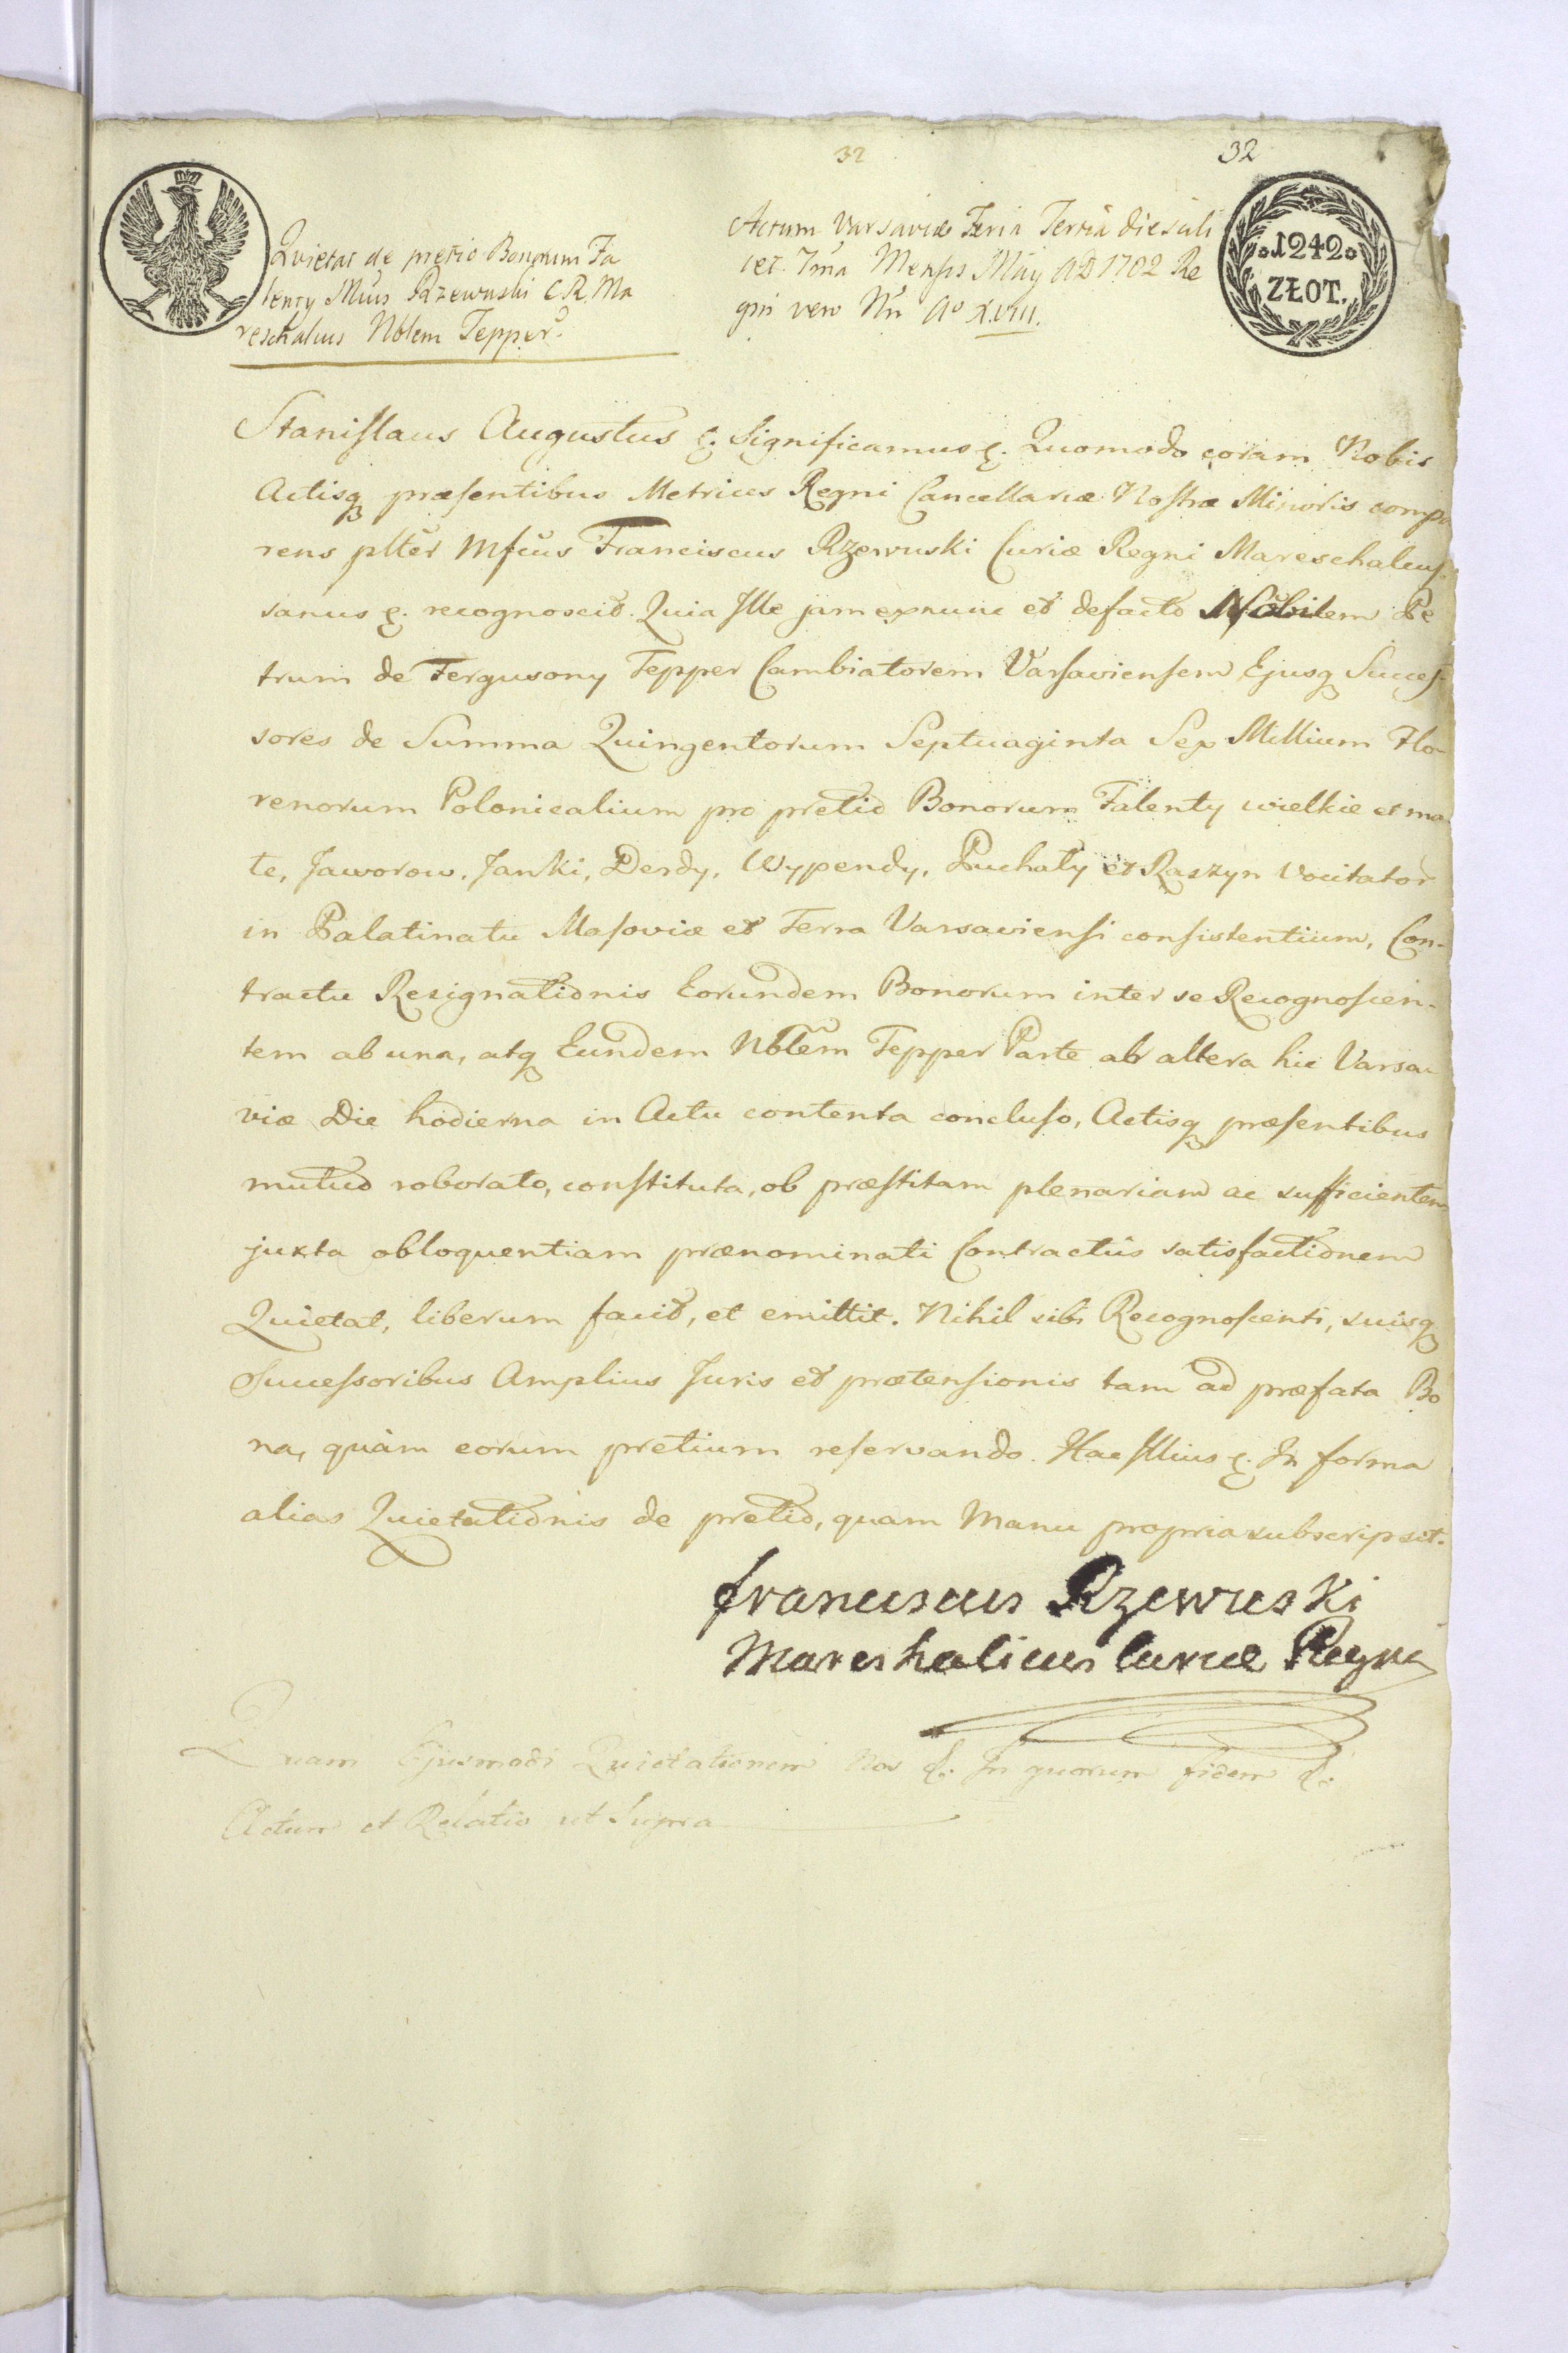 32
32
Quietat de pretio Bonorum Fa
lenty Mfcus Rzewuski C. R. Ma
reschalcus Nblem Tepper.
Actum Varsaviæ Feria Tertia die scili
cet 7ma Mensis Maÿ AD 1782 Re
gni vero Nri Ao XVIII.
1242
ZŁOT.
Stanislaus Augustus &. Significamus &. Quomodo coram Nobis
Actisq præsentibus Metrices Regni Cancellariæ Nostræ Minoris compa
rens plter Mfcus Franciscus Rzewuski Curiæ Regni Mareschalcus
sanus &. recognoscit. Quia Ille jam exnunc et defacto Nobilem Pe
trum de Fergusony Tepper Cambiatorem Varsaviensem Ejusq Succes-
sores de Summa Quingentorum Septuaginta Sex Millium Flo-
renorum Polonicalium pro pretio Bonorum Falenty wielkie et ma
łe, Jaworow, Janki, Derdy, Wypendy, Puchały et Raszyn vocitator
in Palatinatu Masoviæ et Terra Varsaviensi consistentium, Con-
tractu Resignationis Eorundem Bonorum inter se Recognoscen-
tem ab una, atq Eundem Nblem Tepper Parte ab altera hic Varsa-
viæ Die hodierna in Actu contenta concluso, Actisq præsentibus
mutuo roborato, constituta, ob præstitam plenariam ac sufficientem
juxta obloquentiam prænominati Contractûs satisfactionem
Quietat, liberum facit, et emittit. Nihil sibi Recognoscenti, suisq
Successoribus Amplius Juris et prætensionis tam ad præfata Bo
na, quàm eorum pretium reservando. Hac Illius &. In forma
alias Quietationis de pretio, quam Manu propria subscripsit.
franciscus Rzewuski
Mareshalicus Curiæ Regni
Quam Ejusmodi Quietationem Nos &. In quorum fidem &.
Actum et Relatio ut Supra